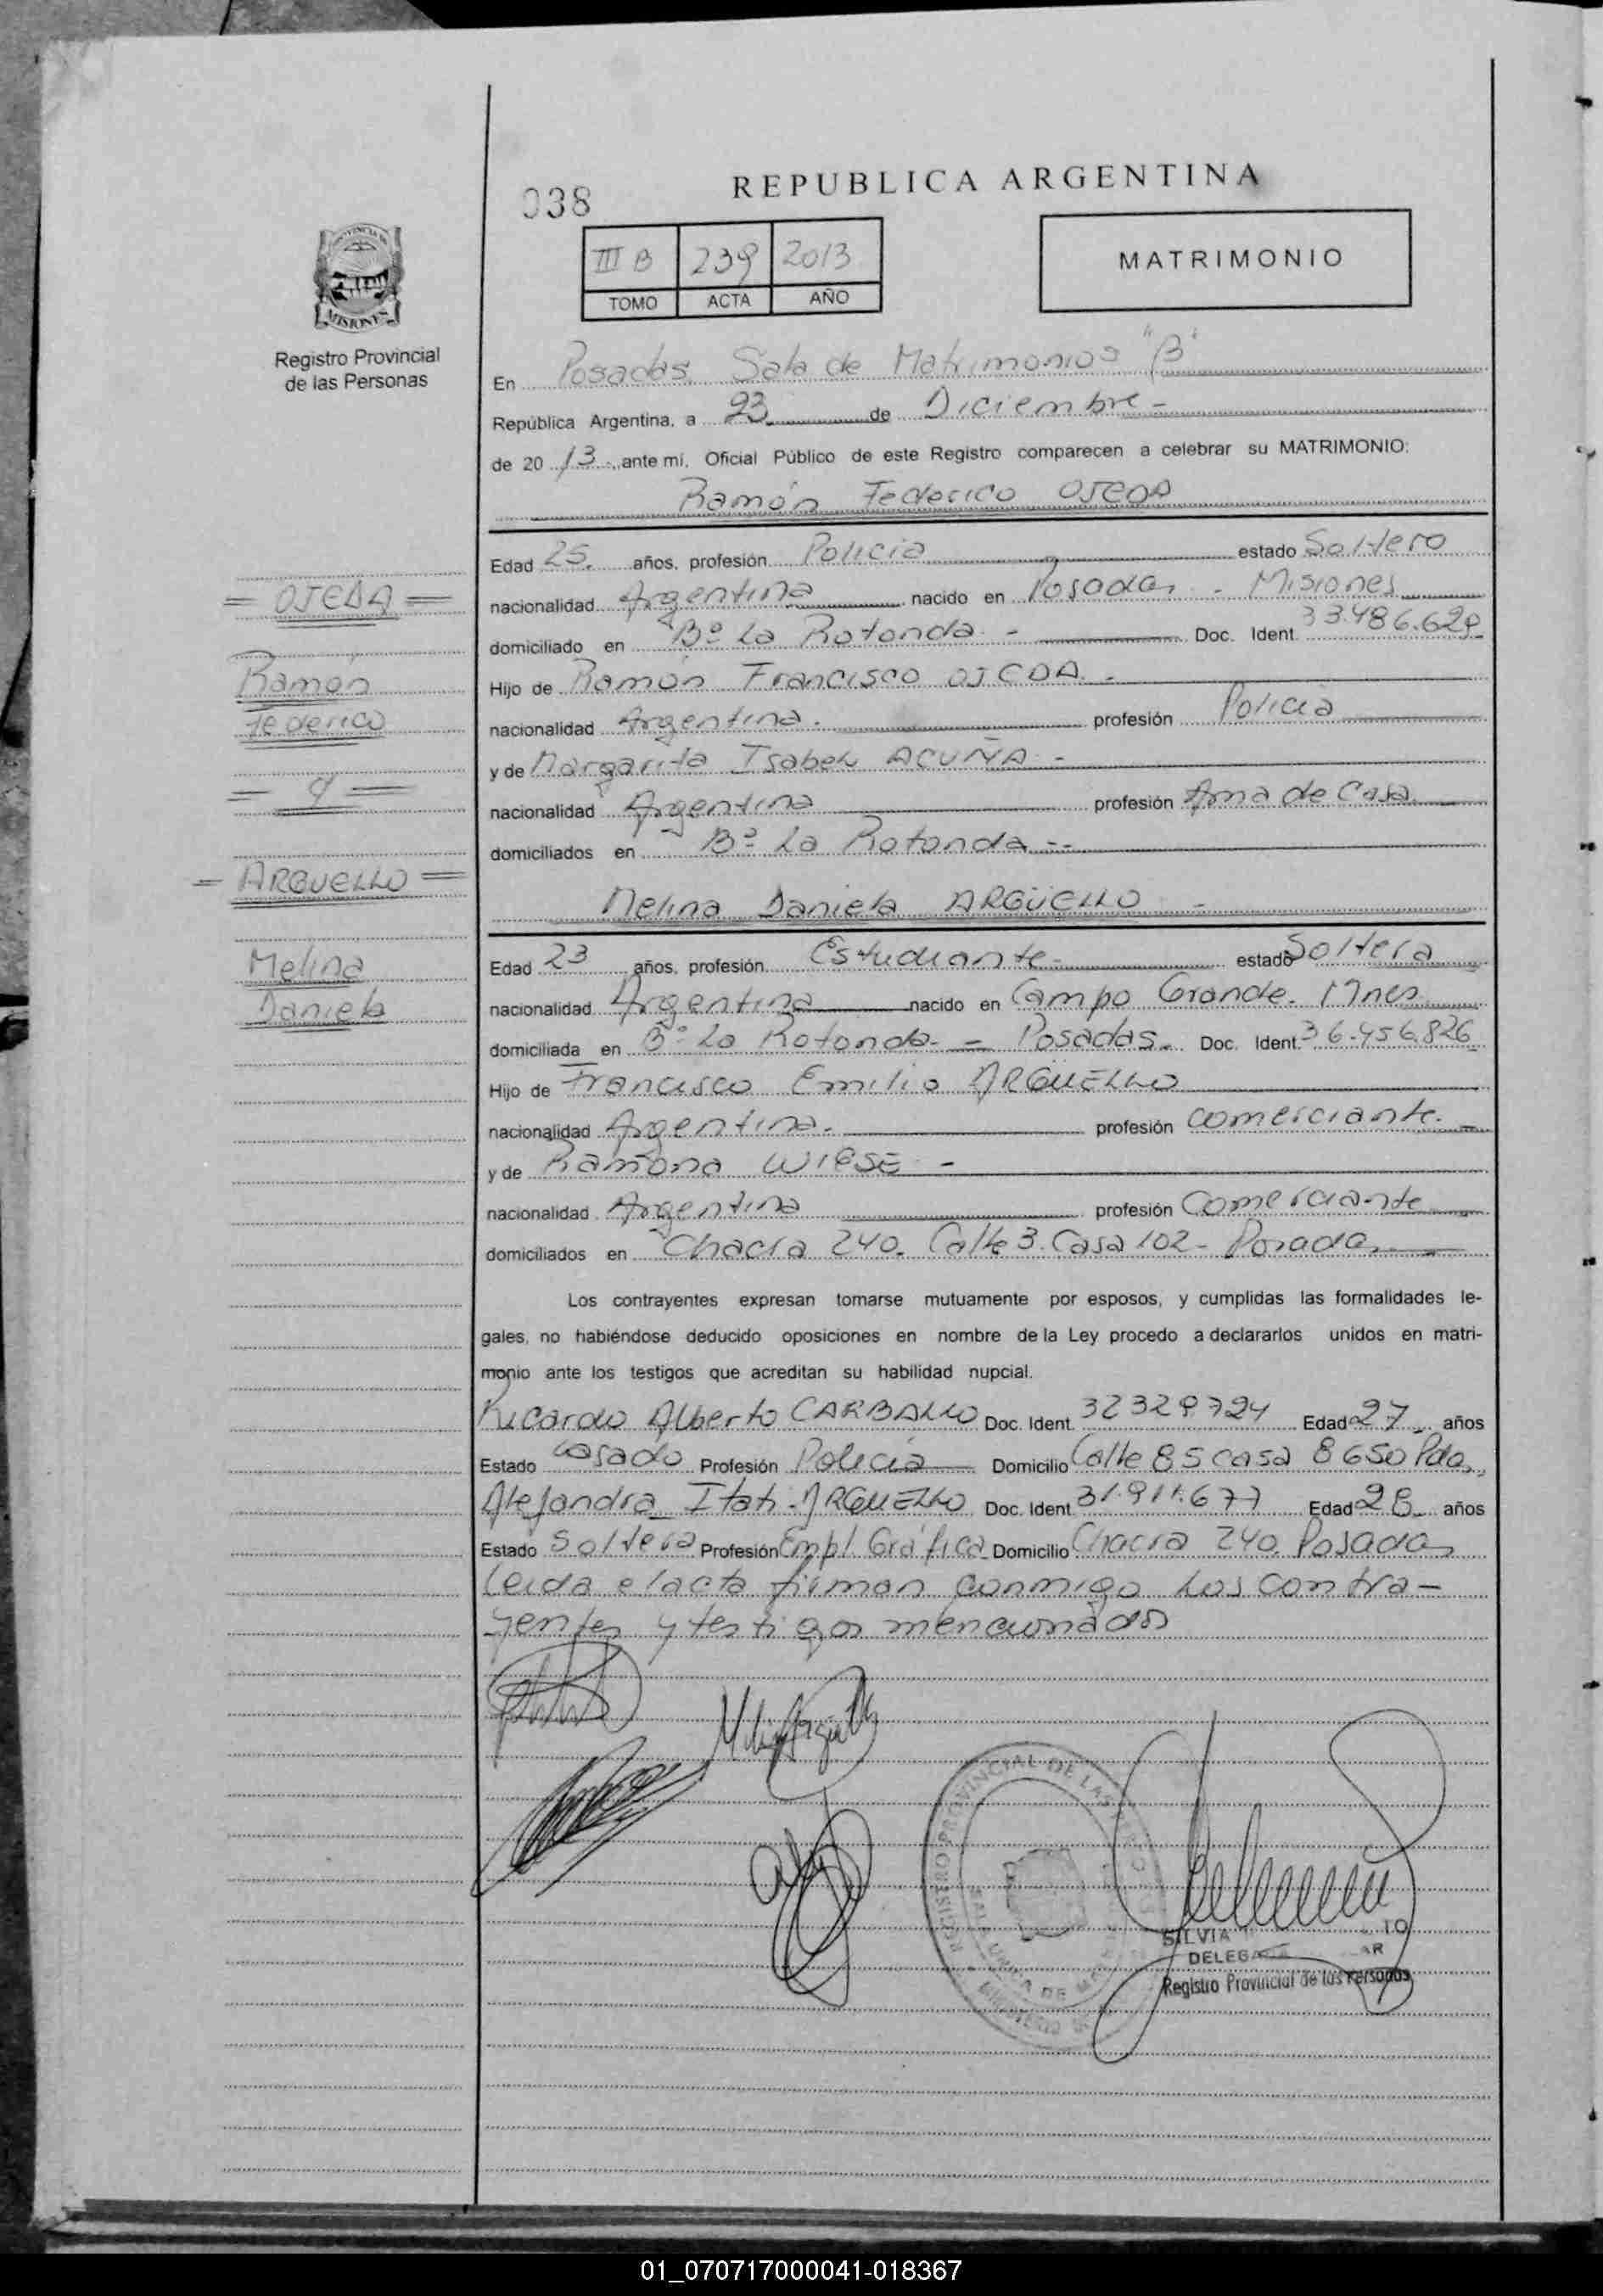 038
REPUBLICA ARGENTINA
III B 239 2013
TOMO ACTA AÑO
MATRIMONIO
PROVINCIA DE
MISIONES
Registro Provincial
de las Personas
En Posadas, Sala de Matrimonios "B"
República Argentina, a 23 de Diciembre -
de 2013 ante mí, Oficial Público de este Registro comparecen a celebrar su MATRIMONIO:
Ramón Federico OJEDA
Edad 25 años, profesión Policia estado Soltero
nacionalidad Argentina nacido en Posadas - Misiones
domiciliado en Bº La Rotonda - Doc. Ident. 33.486.629
Hijo de Ramón Francisco OJEDA -
nacionalidad Argentina. profesión Policia
y de Margarita Isabel ACUÑA -
nacionalidad Argentina profesión Ama de Casa
domiciliados en Bº La Rotonda --
= OJEDA =
Ramón
Federico
= y =
= ARGUELLO =
Melina
Daniela
Melina Daniela ARGÜELLO -
Edad 23 años, profesión Estudiante - estado Soltera
nacionalidad Argentina nacido en Campo Grande - Mnes
domiciliada en Bº La Rotonda - Posadas. Doc. Ident. 36.456.826
Hijo de Francisco Emilio ARGUELLO
nacionalidad Argentina. profesión comerciante. -
y de Ramona WIESE -
nacionalidad Argentina profesión Comerciante
domiciliados en Chacra 240. Calle 3. Casa 102 - Posadas
Los contrayentes expresan tomarse mutuamente por esposos, y cumplidas las formalidades le-
gales, no habiéndose deducido oposiciones en nombre de la Ley procedo a declararlos unidos en matri-
monio ante los testigos que acreditan su habilidad nupcial.
Ricardo Alberto CARBALLO Doc. Ident. 32329724 Edad 27 años
Estado casado Profesión Policia Domicilio Calle 85 casa 8650 Pdas.
Alejandra Itati ARGUELLO Doc. Ident. 31.911.677 Edad 28 años
Estado Soltera Profesión Empl. Gráfica Domicilio Chacra 240 Posadas
Leida el acta firman conmigo los contra-
yentes y testigos mencionados
REGISTRO PROVINCIAL DE LAS
SILVIA
Registro Provincial de las Personas
01_070717000041-018367